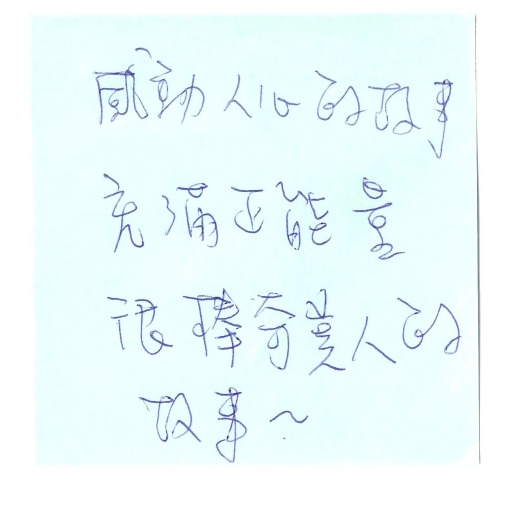 感動人心的故事
充滿正能量
很棒奇異人的
故事~